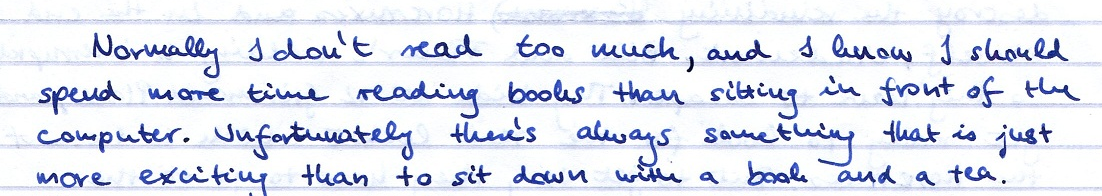 Normally I don't read too much, and I know I should
spend more time reading books than sitting in front of the
computer. Unfortunately there's always something that is just
more exciting than to sit down with a book and a tea.